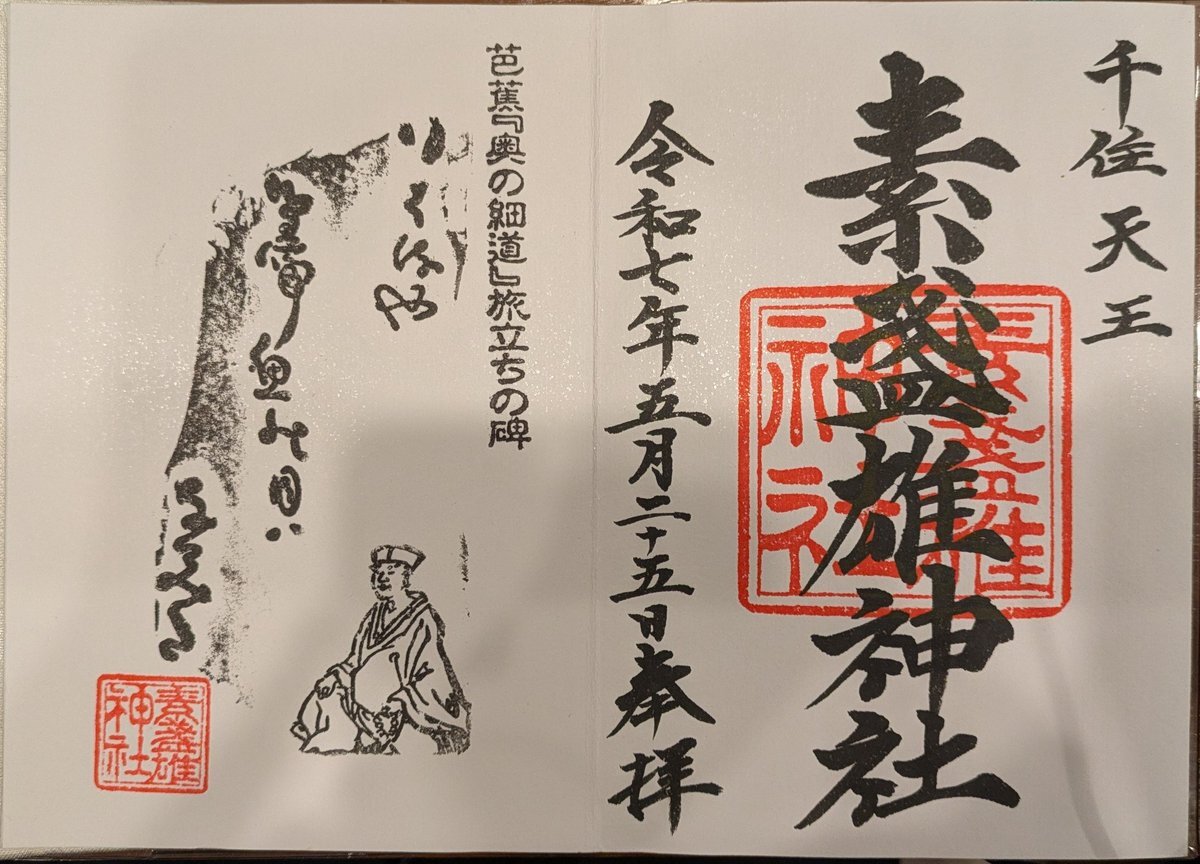 千住天王
素盞雄神社
素盞雄
神社
令和七年五月二十五日奉拝
芭蕉『奥の細道』旅立ちの碑
鳥啼魚の目ハ
素盞雄
神社